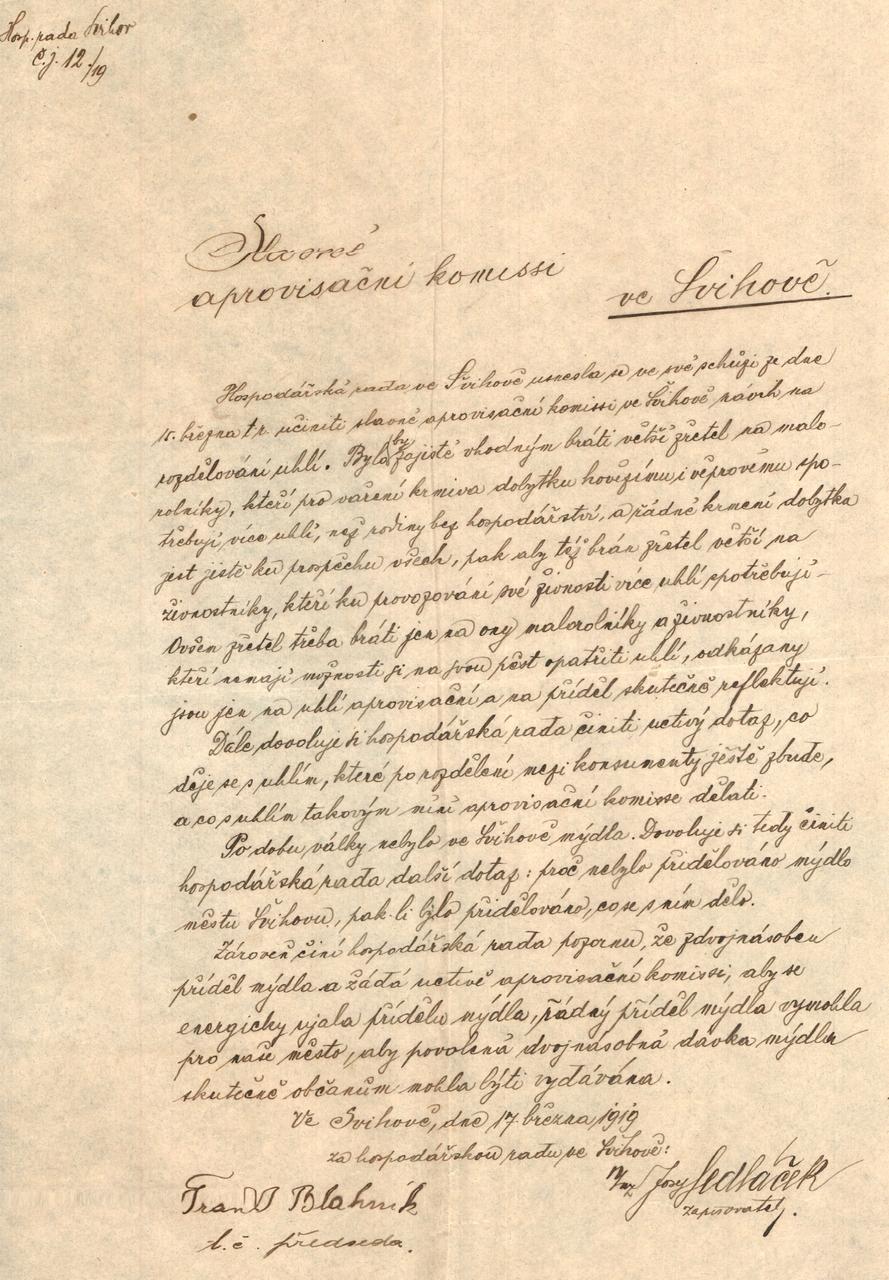 Hosp. rada Švihov
č.j. 12/19
Slavné
aprovisační komissi
ve Švihově.
Hospodářská rada ve Švihově usnesla se ve své schůzi ze dne
15. března t.r. učiniti slavné aprovisační komissi ve Švihově návrh na
rozdělování uhlí. Bylo by zajisté vhodným bráti větší zřetel na malo-
rolníky, kteří pro vaření krmiva dobytku hovězímu i vepřovému spo-
třebují více uhlí, než rodiny bez hospodářství, a řádné krmení dobytka
jest jistě ku prospěchu všech, pak aby téj brán zřetel větší na
živnostníky, kteří ku provozování své živnosti více uhlí spotřebují.
Ovšem zřetel třeba bráti jen na ony malorolníky a živnostníky,
kteří nemají možnosti si na svou pěst opatřiti uhlí, odkázany
jsou jen na uhlí aprovisační a na příděl skutečně reflektují.
Dále dovoluje si hospodářská rada činiti uctivý dotaz, co
děje se s uhlím, které po rozdělení mezi konsumenty ještě zbude,
a co s uhlím takovým míní aprovisační komisse dělati.
Po dobu války nebylo ve Švihově mýdla. Dovoluje si tedy činiti
hospodářská rada další dotaz: proč nebylo přidělováno mýdlo
městu Švihovu, pak-li bylo přidělováno, co se s ním dělo.
Zároveň činí hospodářská rada pozornu, že zdvojnásoben
příděl mýdla a žádá uctivě aprovisační komissi, aby se
energicky ujala přídělu mýdla, řádný příděl mýdla vymohla
pro naše město, aby povolená dvojnásobná dávka mýdla
skutečně občanům mohla býti vydávána.
Ve Švihově, dne 17. března 1919
za hospodářskou radu ve Švihově:
Josef Sedláček
zapisovatel.
Frant. Blahník
t.č. předseda.